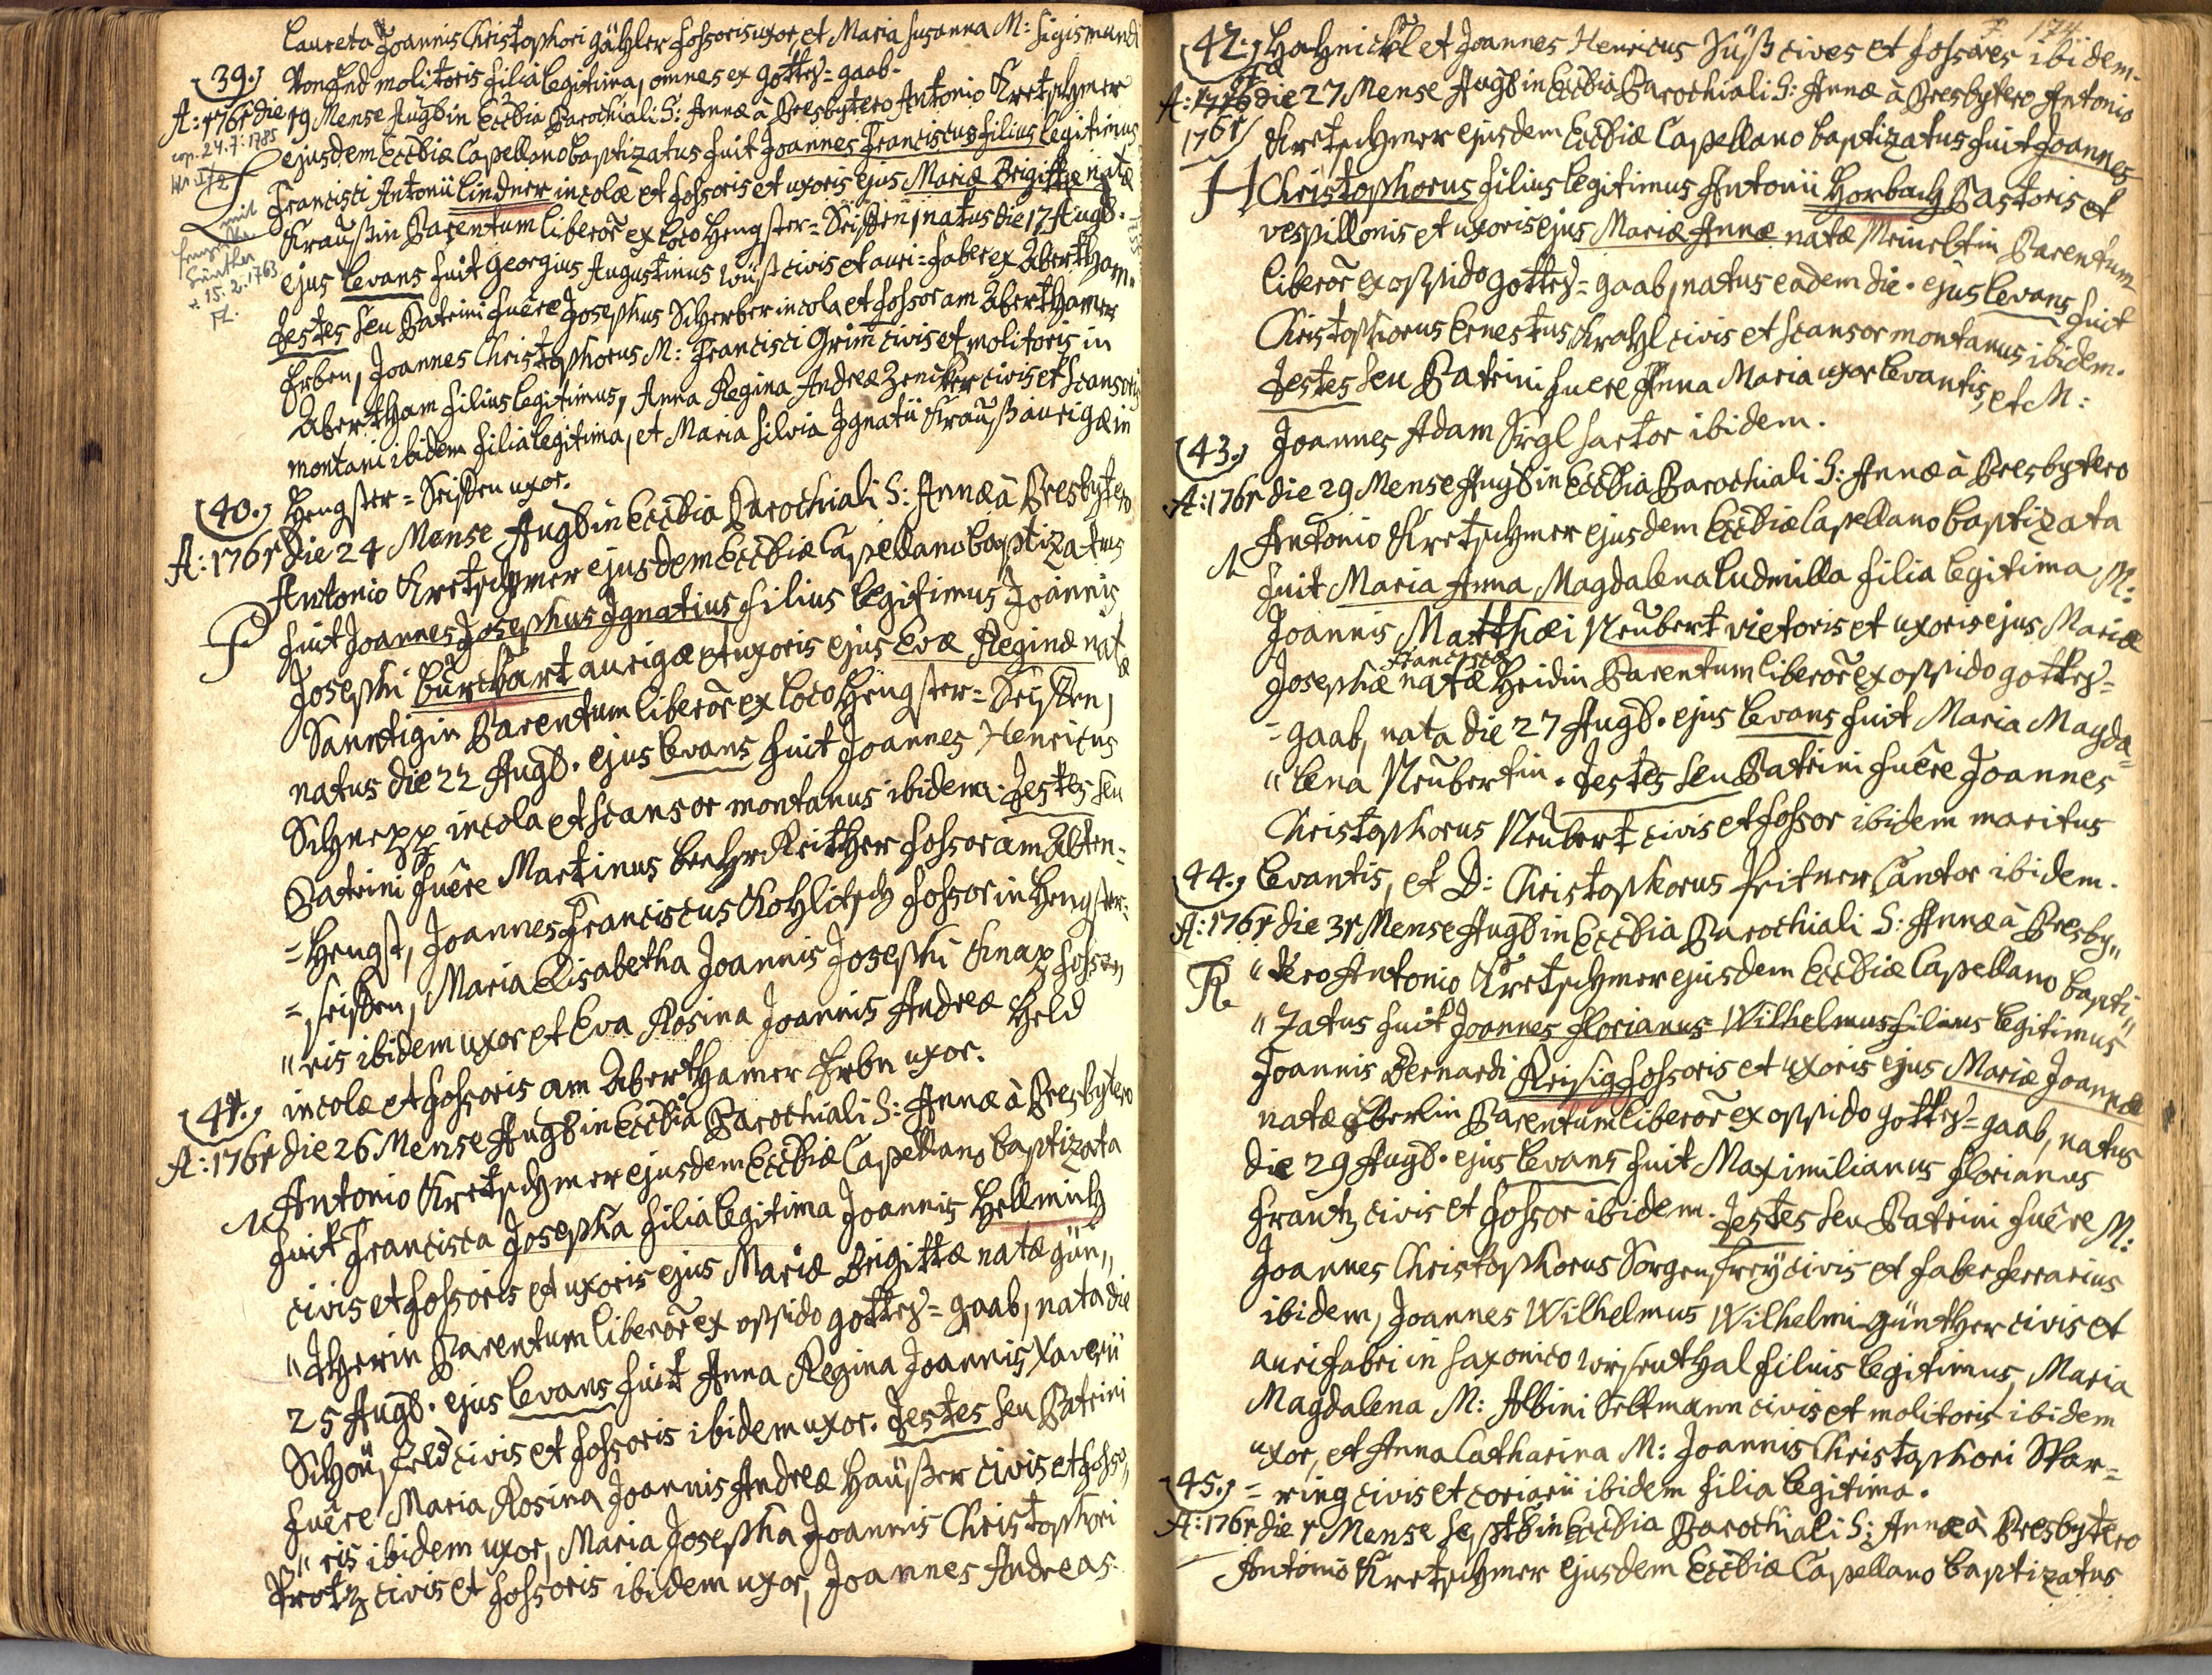 Laureta Joannis Christophori Gähler fossoris uxor, et Maria Susanna M: Sigismundi
molitoris filia legitima, omnes ex Gottes=gaab.
39.
A: 1761 die 19 Mense Augb in Ecclia Parochiali S: Annæ à Presbytero Antonio Kretschmer
cop. 24.7.1785
ejusdem Eccliæ Capellano baptizatus fuit Joannes Franciscus filius legitimus
Francisci Antonii Lindner incolæ et fossoris et uxoris ejus Mariæ Brigittæ natæ
mit
Günther
* 15.2.1763
Kraußin Parentum liberor ex loco Hengster=Seiffen, natus die 17 Augb.
ejus Levans fuit Georgius Augustinus Wüst civis et auri=faber ex Abertham.
Testes seu Patrini fuêre Josephus Scherber incola et fossor am Aberthamer
Erben, Joannes Christophorus M: Francisci Grim̄ civis et molitoris in
Abertham filius legitimus, Anna Regina Andreæ Zenicker civis et scansoris
montani ibidem filia legitima, et Maria Silvia Ignatii Krauß aurigæ in
Hengster=Seiffen uxor.
40.
A: 1761 die 24 Mense Augb in Ecclia Parochiali S: Annæ à Presbytero
Antonio Kretschmer ejusdem Eccliæ Capellano baptizatus
fuit Joannes Josephus Ignatius filius legitimus Joannis
Josephi Burckart aurigæ et uxoris ejus Evæ Reginæ natæ
Sanntigin Parentum liberor ex loco Hengster=Seiffen,
natus die 22 Augb. ejus Levans fuit Joannes Henricus
Schnepp incola et scansor montanus ibidem. Testes seu
Patrini fuêre Martinus fossor am Alten=
=Hengst, Joannes Franciscus Kohlitsch fossor in Hengster=
=seiffen, Maria Elisabetha Joannis Josephi Knap fosso„
„ris ibidem uxor et Eva Rosina Joannis Andreæ Held
incolæ et fossoris am Aberthamer Erbn uxor.
41.
A: 1761 die 26 Mense Augb in Ecclia Parochiali S: Annæ à Presbytero
Antonio Kretschmer ejusdem Eccliæ Capellano baptizata
fuit Francisca Josepha filia legitima Joannis Hellmich
civis et fossoris et uxoris ejus Mariæ Brigittæ natæ Gün„
„therin Parentum liberor ex oppido Gottes=gaab, nata die
25 Augb. ejus Levans fuit Anna Regina Joannis Xaverii
Schönfeld civis et fossoris ibidem uxor. Testes seu Patrini
fuêre Maria Rosina Joannis Andreæ Häußer civis et fosso„
„ris ibidem uxor, Maria Josepha Joannis Christophori
Protz civis et fossoris ibidem uxor, Joannes Andreas
174.
42.
Hahnickl et Joannes Henricus Süß cives et fossores ibidem.
A: 1776 die 27 Mense Augb in Ecclia Parochiali S: Annæ à Presbytero Antonio
1761
Kretschmer ejusdem Eccliæ Capellano baptizatus fuit Joannes
H
Christophorus filius legitimus Antonii Horbach Pastoris et
vespillonis et uxoris ejus Mariæ Annæ natæ Meineltin Parentum
liberor ex oppido Gottes=gaab, natus eadem die. ejus Levans fuit
Christophorus Ernestus Krahl civis et scansor montanus ibidem.
Testes seu Patrini fuere Anna Maria uxor Levantis, et M:
Joannes Adam Sirgl sartor ibidem.
43.
A: 1761 die 29 Mense Augb in Ecclia Parochiali S: Annæ à Presbytero
Antonio Kretschmer ejusdem Eccliæ Capellano baptizata
N
fuit Maria Anna Magdalena Ludmilla filia legitima M:
Joannis Matthæi Neubert vietoris et uxoris ejus Mariæ
Francisca
Josephæ natæ Heidin Parentum liberor ex oppido Gottes=
=gaab, nata die 27 Augb. ejus Levans fuit Maria Magda=
„lena Neubertin. Testes seu Patrini fuêre Joannes
Christophorus Neubert civis et fossor ibidem maritus
Levantis, et D: Christophorus Peitner Cantor ibidem.
44.
A: 1761 die 31 Mense Augb in Ecclia Parochiali S: Annæ à Presby„
R
„tero Antonio Kretschmer ejusdem Eccliæ Capellano bapti„
„zatus fuit Joannes Florianus Wilhelmus filius legitimus
Joannis Bernardi Reisig fossoris et uxoris ejus Mariæ Joannæ
natæ Eberlin Parentum liberor ex oppido Gottes=gaab, natus
die 29 Augb. ejus Levans fuit Maximilianus Florianus
Frantz civis et fossor ibidem. Testes seu Patrini fuêre M:
Joannes Christophorus Sorgenfrey civis et faber ferrarius
ibidem, Joannes Wilhelmus Wilhelmi Günther civis et
aurifabri in Saxonico Wisenthal filius legitimus, Maria
Magdalena M: Albini Seltmann civis et molitoris ibidem
uxor, et Anna Catharina M: Joannis Christophori Star=
=ring civis et coriarii ibidem filia legitima.
45.
A: 1761 die 1 Mense Septb in Ecclia Parochiali S: Annæ à Presbytero
Antonio Kretschmer ejusdem Eccliæ Capellano baptizatus